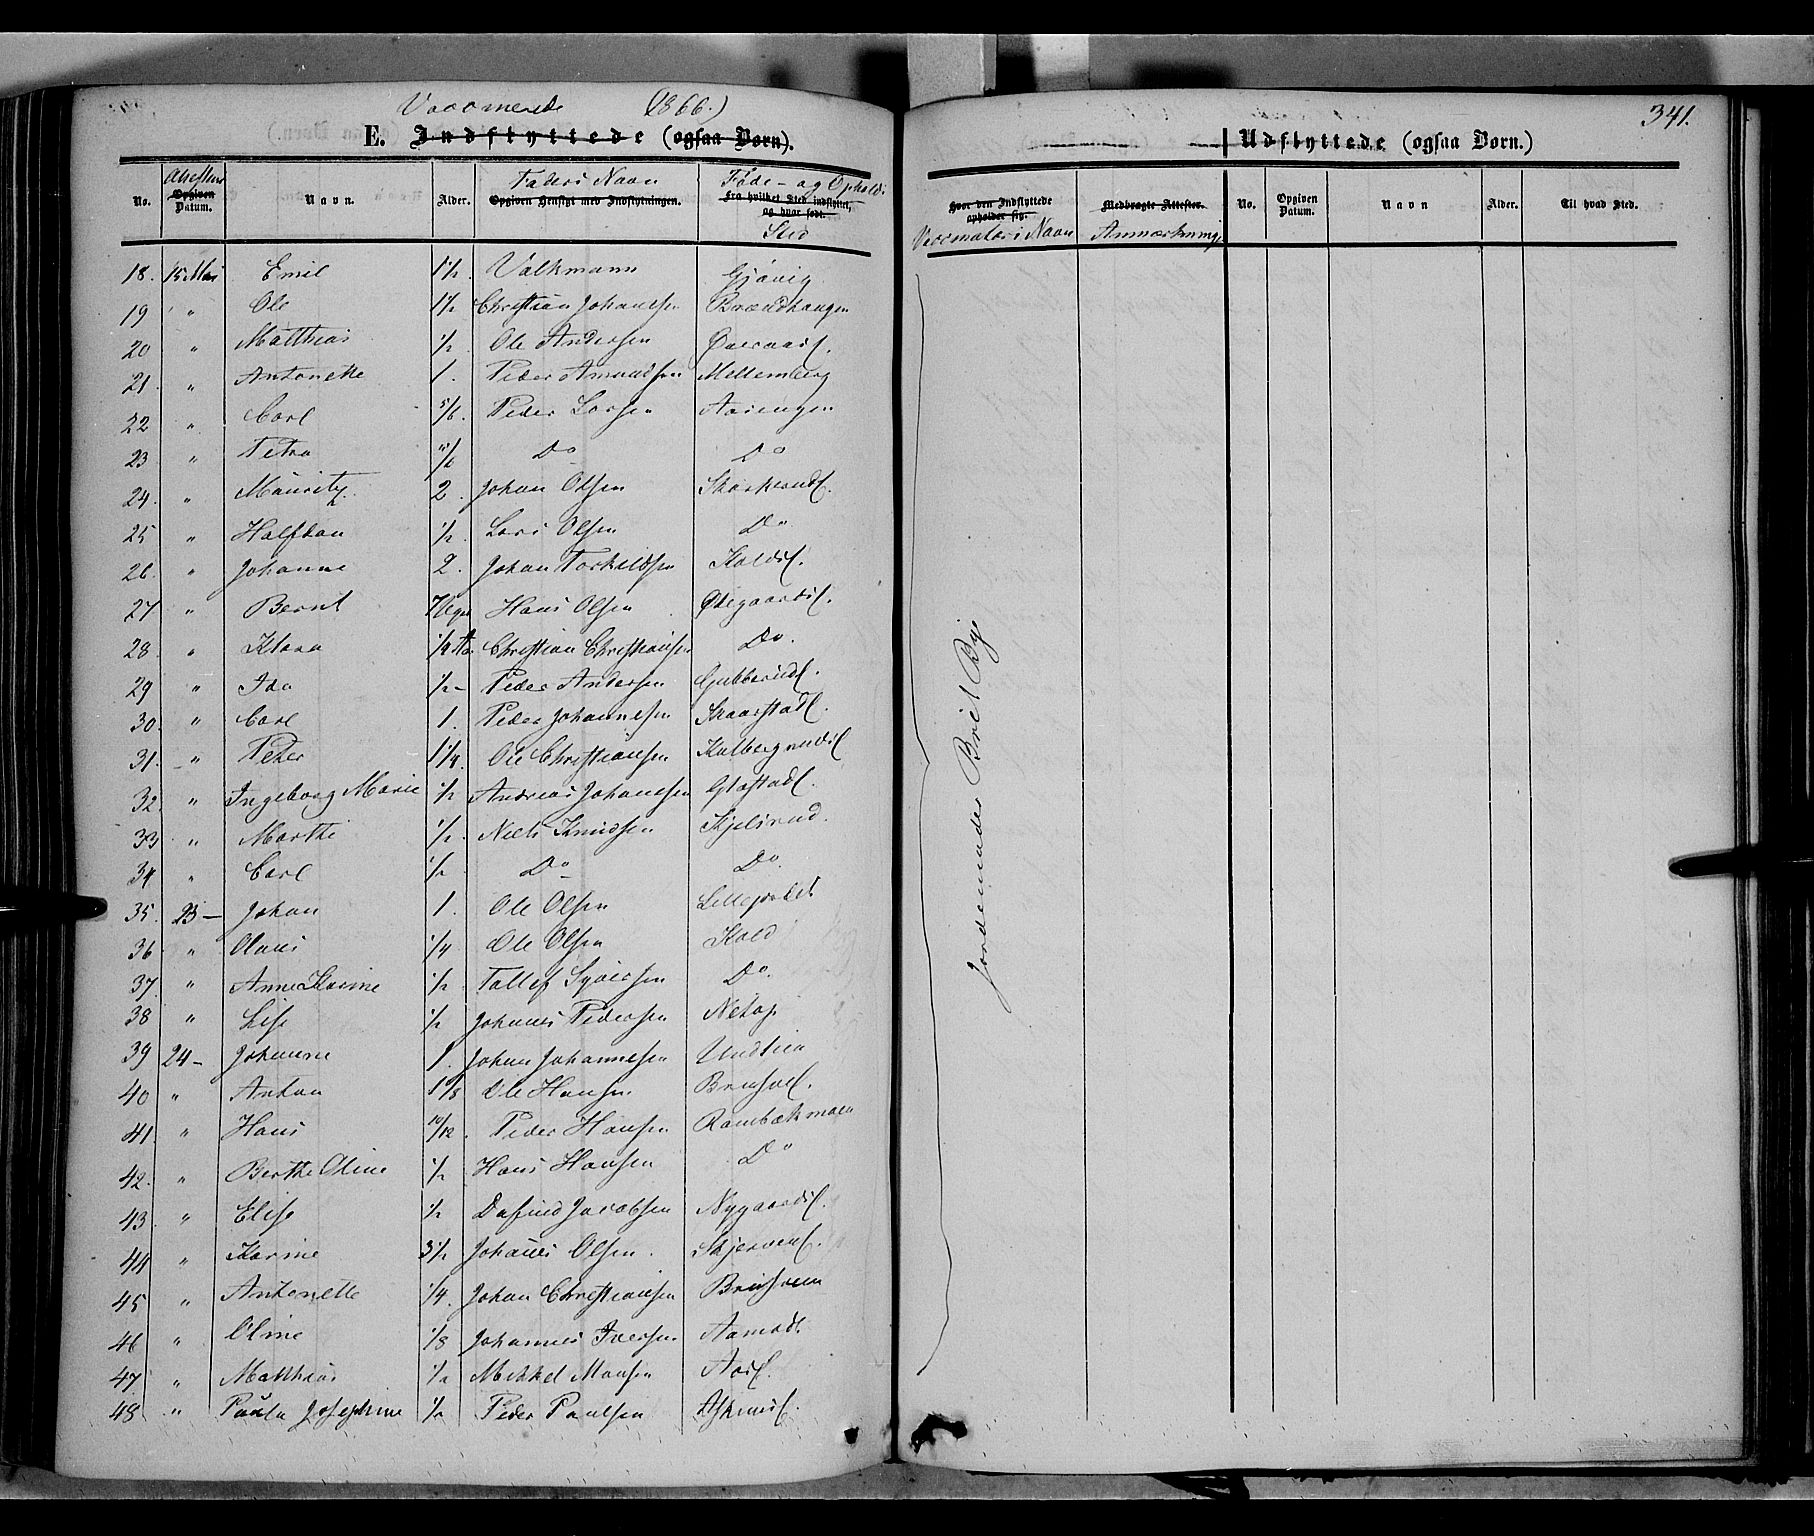 Vaccinerede (1866.)
341.
E. Indflyttede (ogsaa Børn).
Udflyttede (ogsaa Børn.)
No. | Attestens Opgiven Datum. | Navn. | Alder. | Faders Navn Opgiven Hensigt med Indflytningen. | Føde- og Opholds Fra hvilket Sted indflyttet, og hvor født. Sted | Hvor den Indflyttede opholder sig. Vaccinatørs Navn | Medbragte Attester. Anmærkninger | No. | Opgiven Datum. | Navn | Alder. | Til hvad Sted.
18. 15 Mai Emil 1 1/2 Valkmann Gjøvig
19 " Ole 1 1/2 Christian Johansen Brændhaugen
20 " Matthias 1/2 Ole Andersen
21. " Antonette 1. Peder Amundsen Mellemberg
22 " Carl 5/6. Peder Larsen Aasengen
23 " Petra Do Do
24. " Mauritz. 2. Johan Olsen Skarkerudl.
25 " Halfdan 1/2 Lars Olsen Do
26. " Johanne 2. Johan Torkeldsen Koldsl.
27 " Bernt 7 Uger Hans Olsen Ødegaardsl.
28. " Klara 1/4 Aar Christian Christiansen Do.
29 " Ida 1/2 - Peder Andersen Gubberudsl.
30. " Carl 1. Peder Johannesen Skaarstadl.
31. " Peder 1 1/4. Ole Christiansen Kalbergrudsl
32. " Ingeborg Marie 1/2 Andreas Johansen Glæstadl.
33 " Marthe 1/2. Niels Knudsen Kjelsrud.
34 " Carl 1/2 Do Do.
35. 23 - Johan 1. Ole Olsen
36 " Olaus 1/4. Ole Olsen Kold
37. " Anne Karine 1/2 Tollef Syversen Do.
38 " Lise 1/2 Johanes Pedersen
39 24 - Johanne 1. Johan Johannesen Undlien
40 " Anton 1 1/8 Ole Hansen
41. " Hans 10/12. Peder Hansen Rambækmoen
42. " Berthe Oline 1/2 Hans Hansen Do
43. " Elise 1/2 Dafind Jacobsen Nygaardsl.
44 " Karine 3 1/2 Johanes Olsen. Skjervenl.
45 " Antonette 1/4. Johan Christiansen
46 " Oline 1/8 Johannes Iversen Aamodt.
47 " Matthias 1/2 Mikkel Monsen Aasl.
48 " Paula Josephine 1/2 Peder Paulsen
Jordemoder Brit Bye